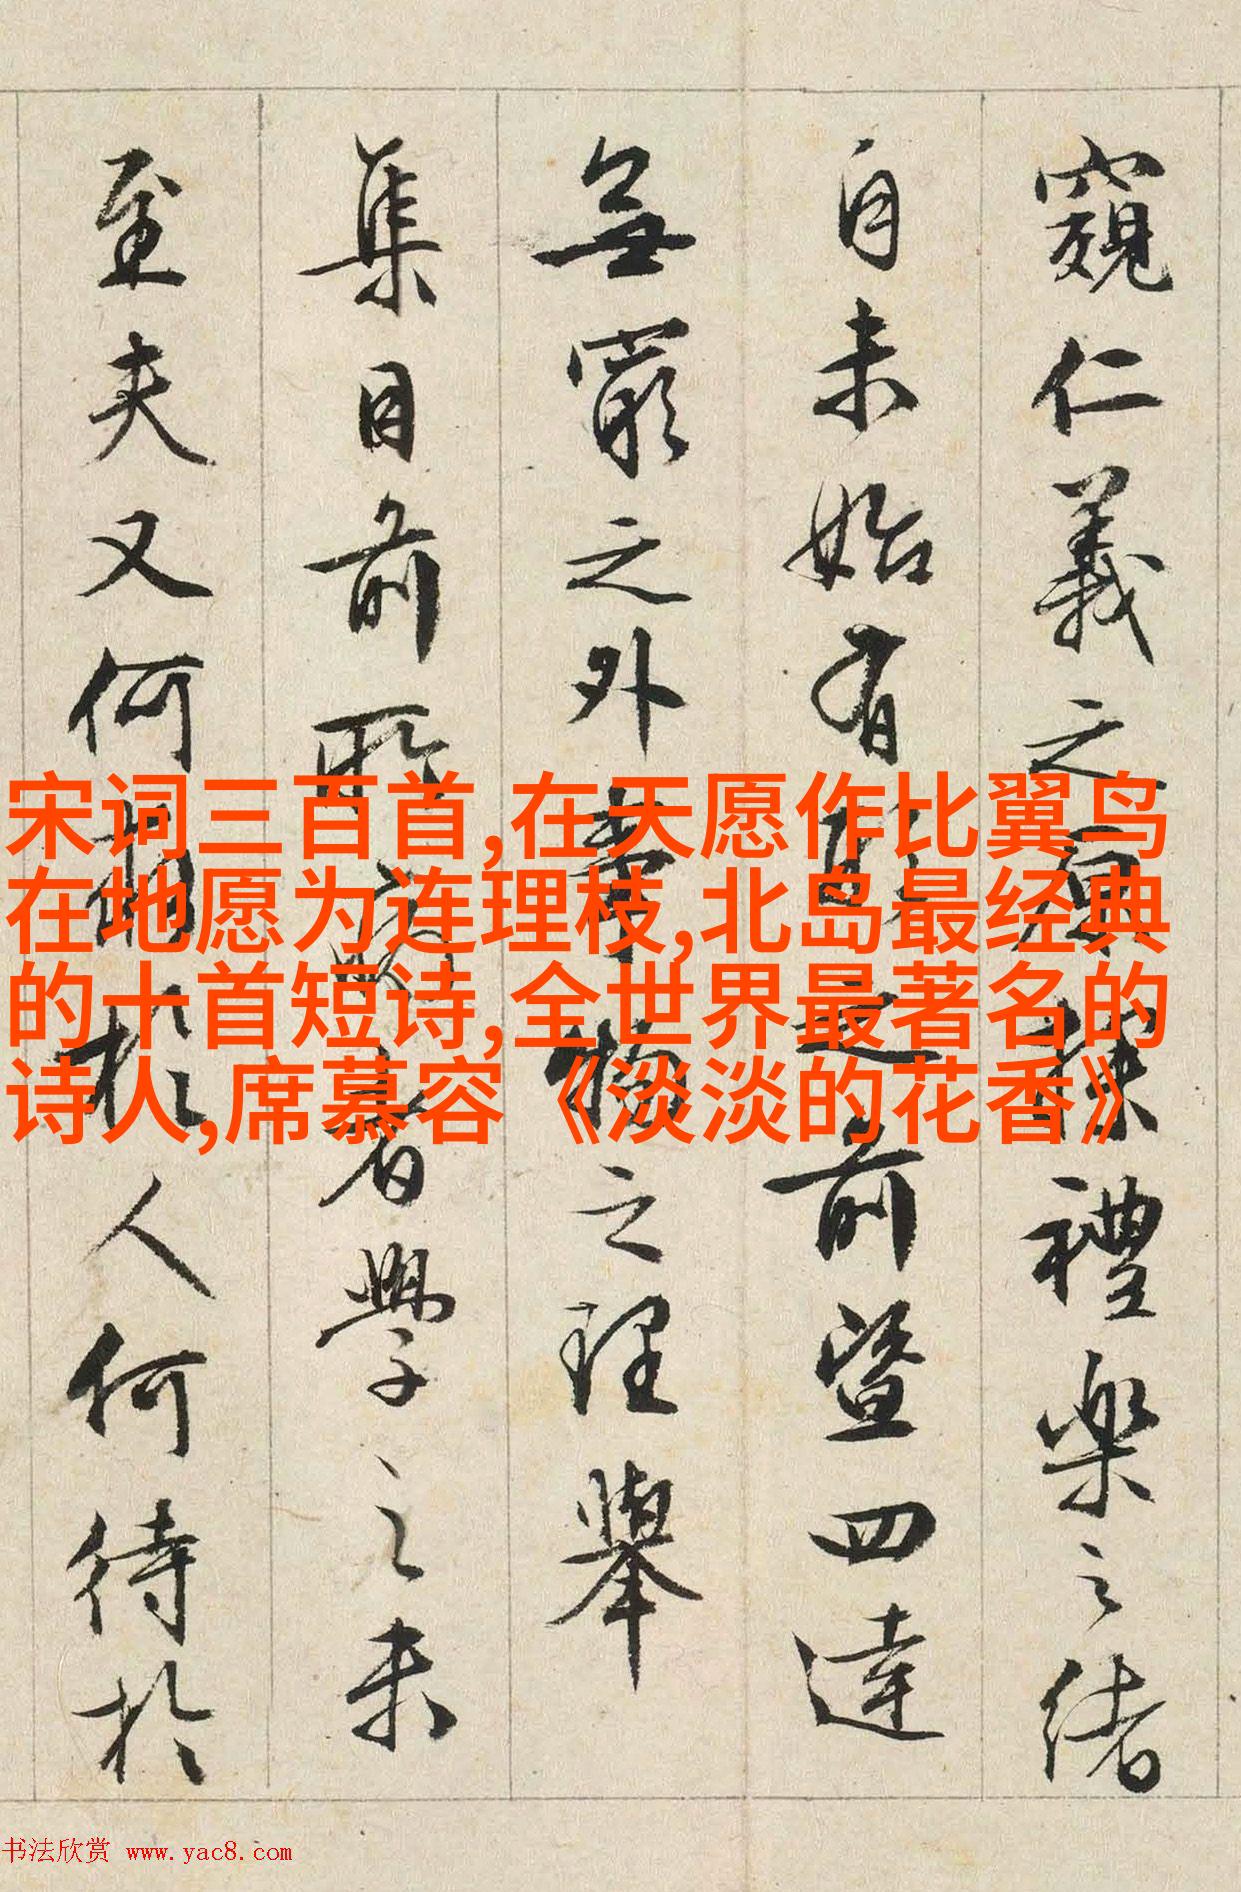 窺仁義之原探禮樂之緒
自未始有之前暨四達
無窮之外物之理舉
集目前所者學之未
至夫又何於人何待於
宋词三百首,在天愿作比翼鸟
在地愿为连理枝,北岛最经典
的十首短诗,全世界最著名的
诗人,席慕容《淡淡的花香》
书法欣赏 www.yac8.com